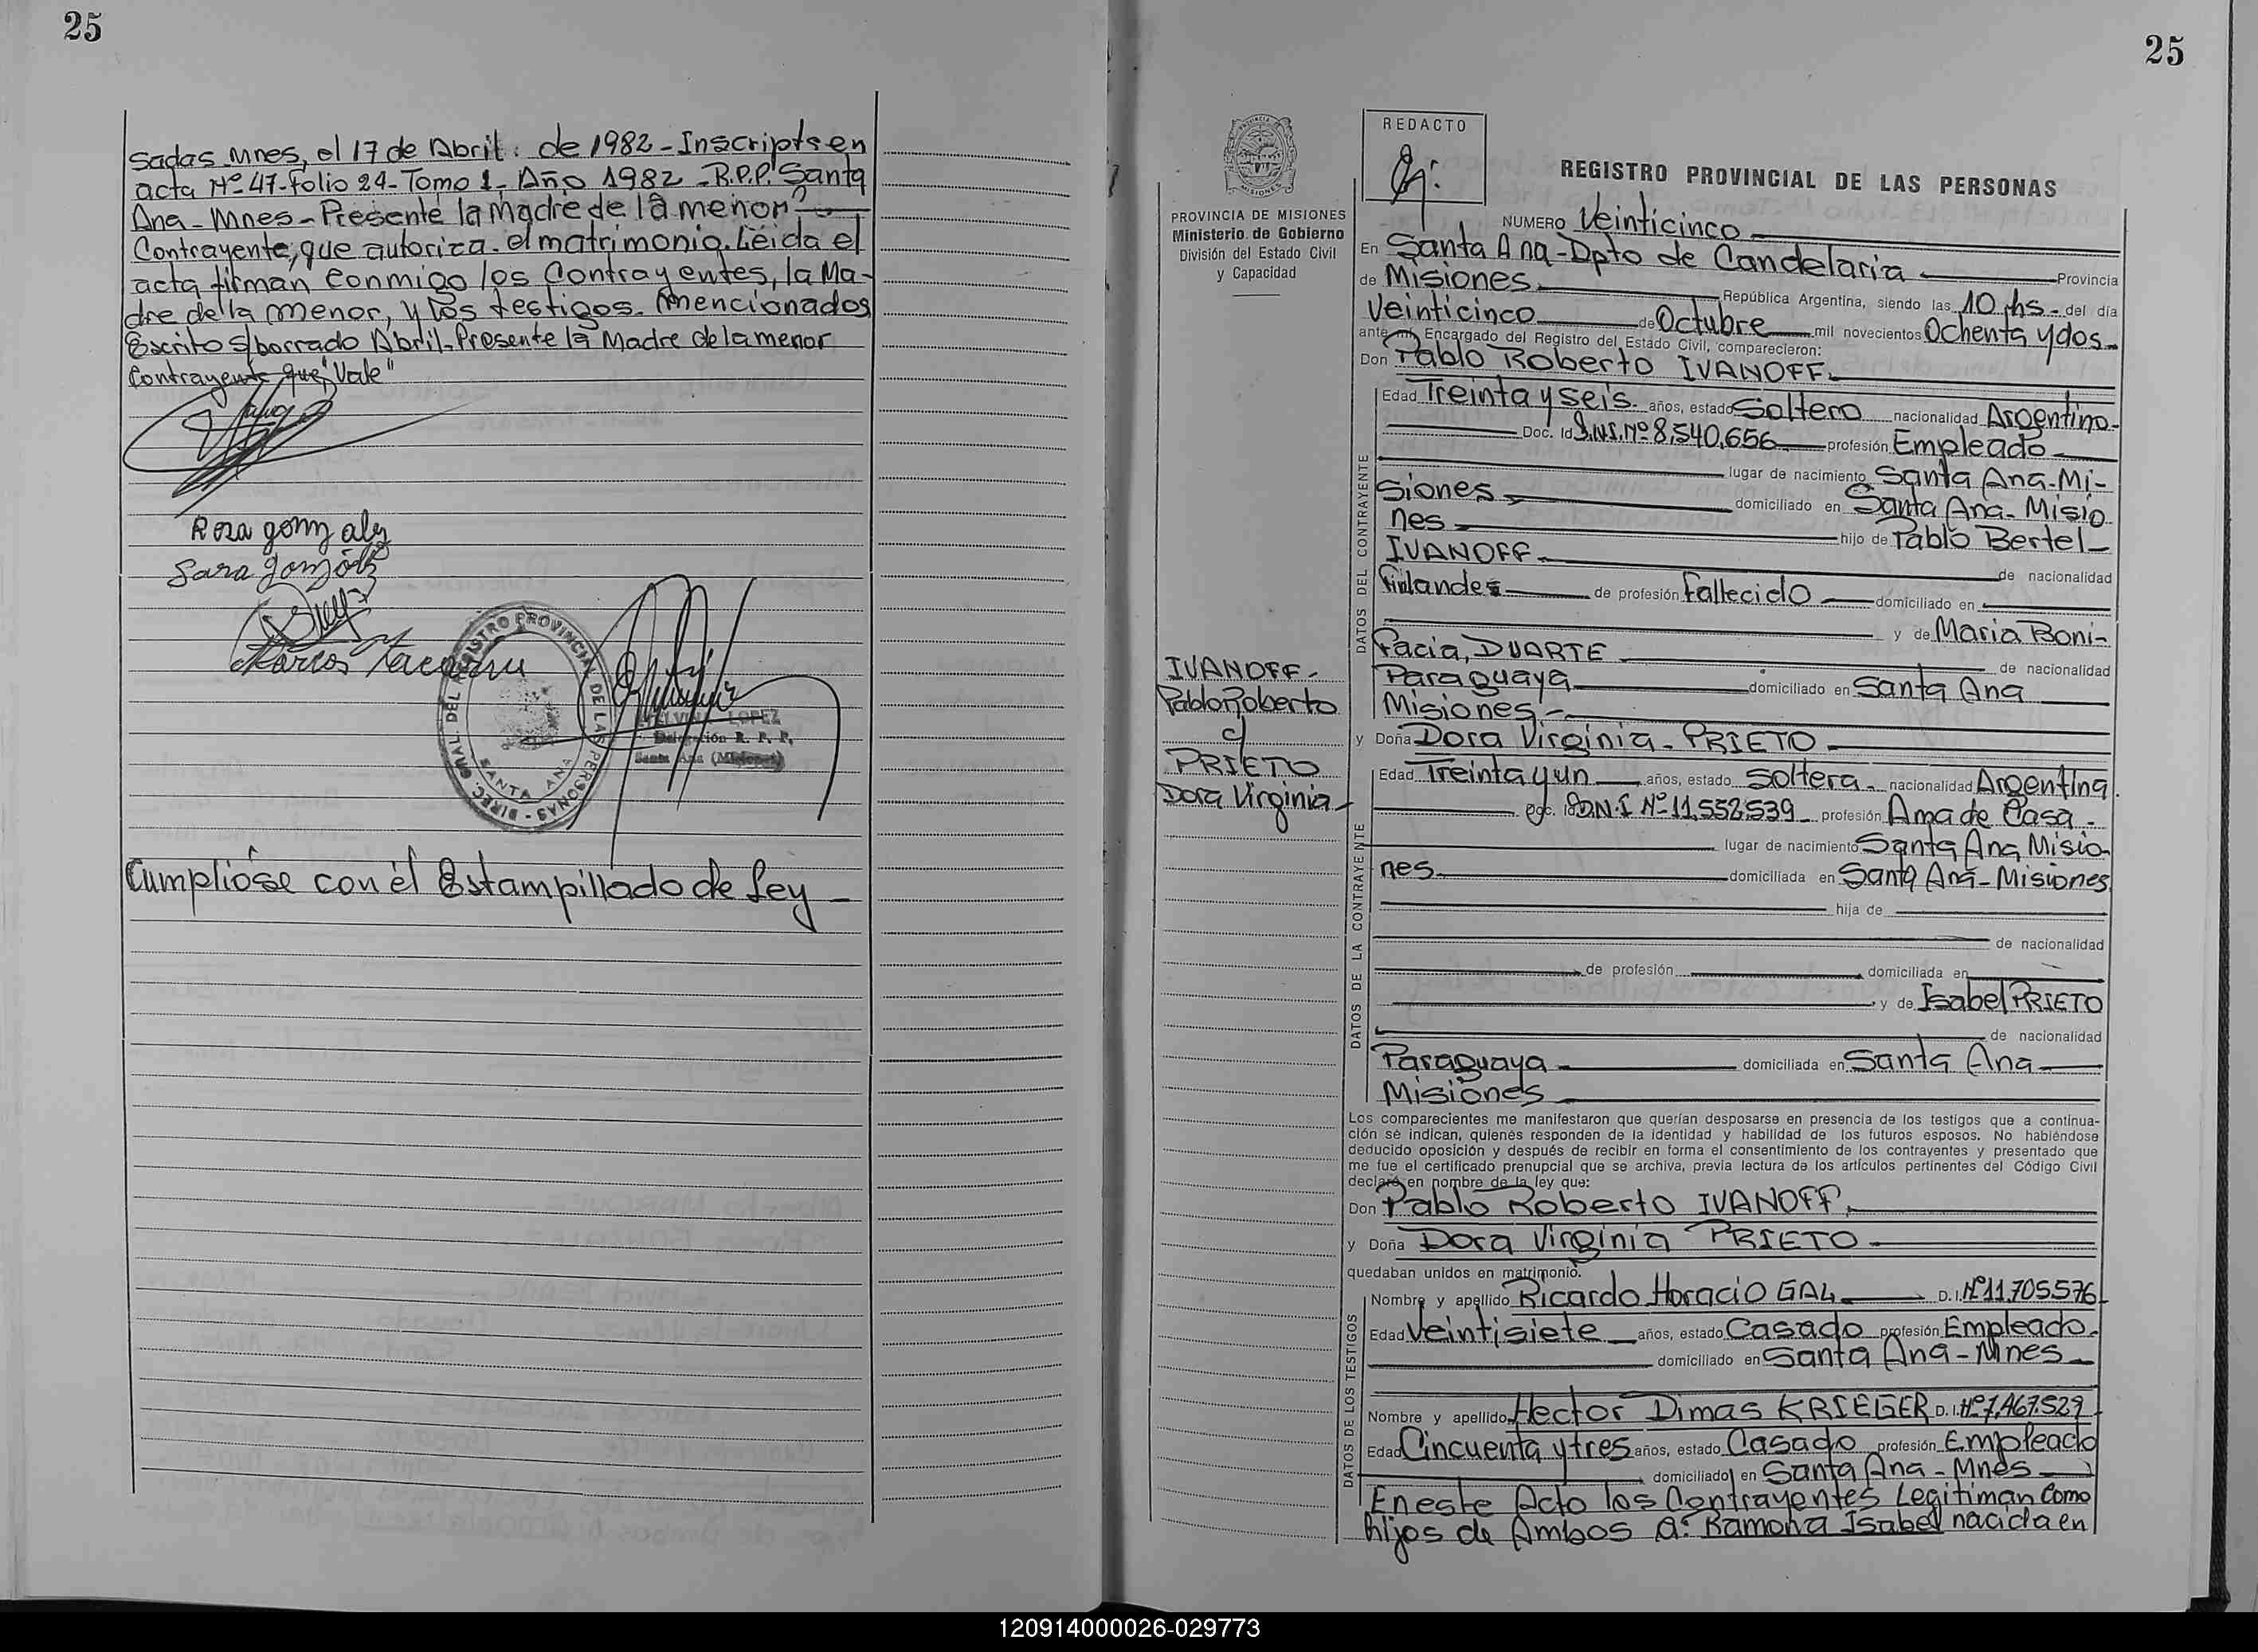 25
Sadas Mnes, el 17 de Abril. de 1982 - Inscripts en
acta Nº 47- folio 24- Tomo 1- Año 1982 - R.P.P. Santa
Ana - Mnes - Presente la Madre de la menor
Contrayente, que autoriza el matrimonio. Leida el
acta firman conmigo los Contrayentes, la Ma-
dre de la menor, y los testigos mencionados
Escrito s/borrado Abril - Presente la Madre de la menor
Contrayente que "Vale"
Rosa gonzalez
Sara
Marcos
DIREC. GRAL. DEL REGISTRO PROVINCIAL DE LAS PERSONAS
SANTA ANA
LOPEZ
Delegación R. P. P.
Santa Ana (Misiones)
Cumplióse con el Estampillado de Ley -
25
PROVINCIA DE MISIONES
Ministerio de Gobierno
División del Estado Civil
y Capacidad
IVANOFF -
Pablo Roberto
c/
PRIETO
Dora Virginia -
REDACTO
REGISTRO PROVINCIAL DE LAS PERSONAS
NUMERO Veinticinco
En Santa Ana - Dpto de Candelaria Provincia
de Misiones República Argentina, siendo las 10 hs - del día
Veinticinco de Octubre mil novecientos Ochenta y dos -
ante mi, Encargado del Registro del Estado Civil, comparecieron:
Don Pablo Roberto IVANOFF -
Edad Treinta y seis - años, estado Soltero nacionalidad Argentino -
Doc. Id Nº 8,540,656 profesión Empleado -
lugar de nacimiento Santa Ana - Mi-
siones domiciliado en Santa Ana - Misio
nes hijo de Pablo Bertel -
IVANOFF - de nacionalidad
Finlandes de profesión Fallecido domiciliado en
y de Maria Boni-
facia, DUARTE de nacionalidad
Paraguaya domiciliado en Santa Ana
Misiones -
y Doña Dora Virginia - PRIETO -
Edad Treinta y un años, estado Soltera - nacionalidad Argentina
Doc. Id D.N.I Nº 11,552,539 - profesión Ama de Casa -
lugar de nacimiento Santa Ana Misio-
nes domiciliada en Santa Ana - Misiones
hija de
de nacionalidad
de profesión domiciliada en
y de Isabel PRIETO
de nacionalidad
Paraguaya domiciliada en Santa Ana
Misiones
Los comparecientes me manifestaron que querían desposarse en presencia de los testigos que a continua-
ción se indican, quienes responden de la identidad y habilidad de los futuros esposos. No habiéndose
deducido oposición y después de recibir en forma el consentimiento de los contrayentes y presentado que
me fue el certificado prenupcial que se archiva, previa lectura de los artículos pertinentes del Código Civil
declaré en nombre de la ley que:
Don Pablo Roberto IVANOFF
y Doña Dora Virginia PRIETO
quedaban unidos en matrimonio.
Nombre y apellido Ricardo Horacio GAL D.I. Nº 11,705576
Edad Veintisiete años, estado Casado profesión Empleado -
domiciliado en Santa Ana - Mnes -
Nombre y apellido Hector Dimas KRIEGER D.I. Nº 7,467.529
Edad Cincuenta y tres años, estado Casado profesión Empleado
domiciliado en Santa Ana - Mnes
En este Acto los Contrayentes Legitiman como
hijos de Ambos a: Ramona Isabel nacida en
DATOS DEL CONTRAYENTE
DATOS DE LA CONTRAYENTE
DATOS DE LOS TESTIGOS
120914000026-029773